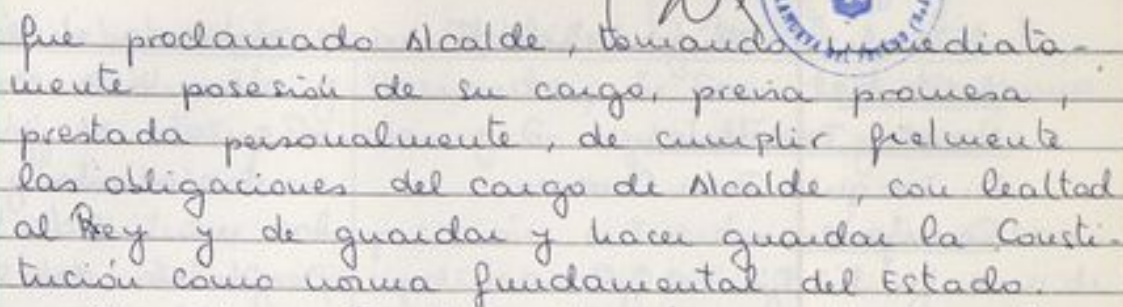 fue proclamado Alcalde, tomando inmediata-
mente posesión de su cargo, previa promesa,
prestada personalmente, de cumplir fielmente
las obligaciones del cargo de Alcalde, con lealtad
al Rey y de guardar y hacer guardar la Consti-
tución como norma fundamental del Estado.